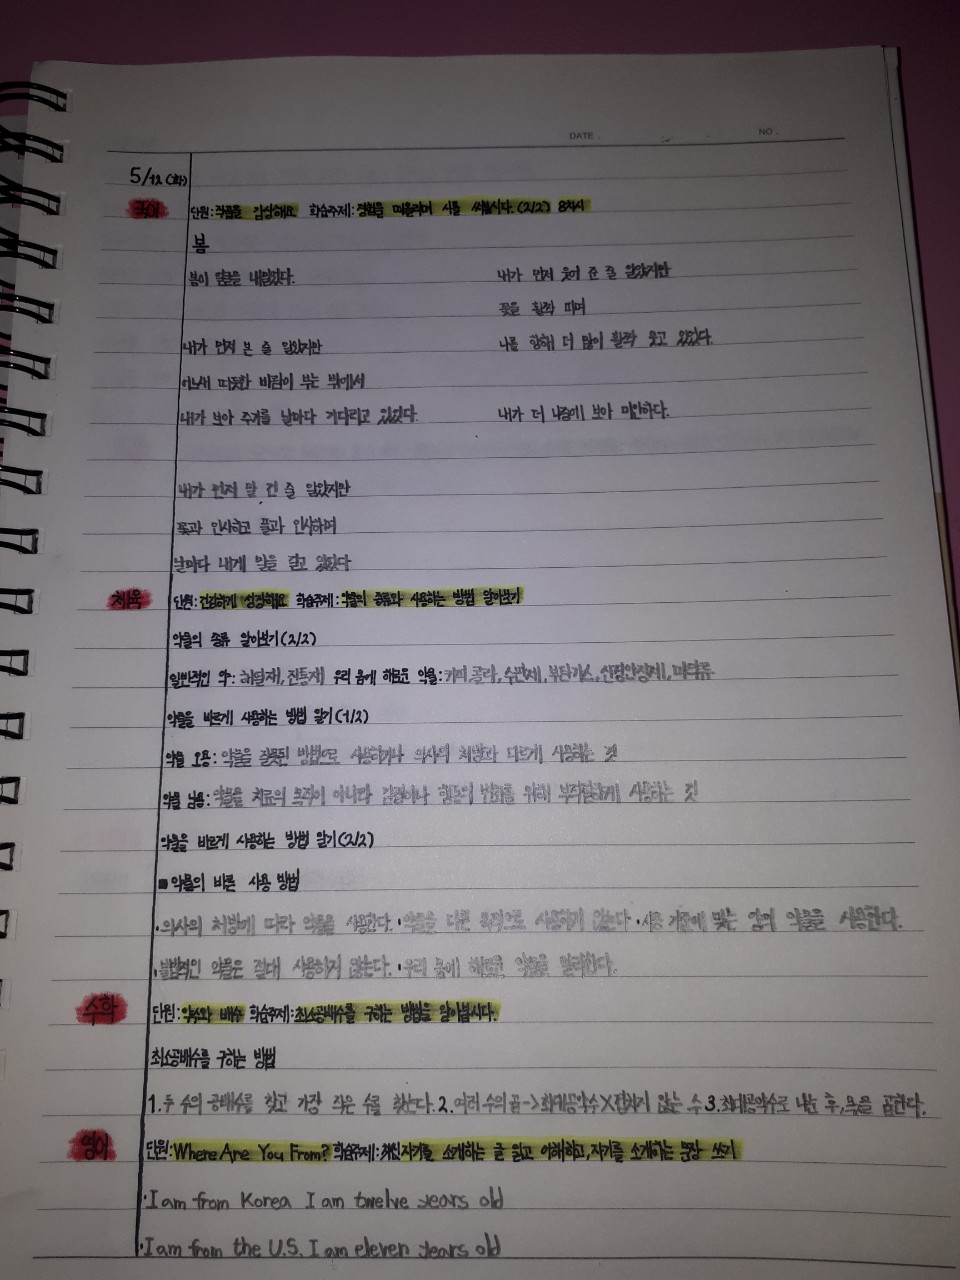 DATE . NO .
5/12 (화)
국어 단원: 작품을 감상해요 학습주제: 경험을 떠올리며 시를 써봅시다. (2/2) 8차시
봄
봄이 얼굴을 내밀었다.
내가 먼저 본 줄 알았지만
어느새 따뜻한 바람이 부는 밖에서
내가 보아 주기를 날마다 기다리고 있었다.
내가 먼저 말 건 줄 알았지만
꽃과 인사하고 풀과 인사하며
날마다 내게 말을 걸고 있었다
내가 먼저 웃어 준 줄 알았지만
꽃을 활짝 피며
나를 향해 더 많이 활짝 웃고 있었다.
내가 더 나중에 보아 미안하다.
체육 단원: 건강하게 성장해요 학습주제: 약물의 종류와 사용하는 방법 알아보기
약물의 종류 알아보기(2/2)
일반적인 약: 해열제, 진통제 우리 몸에 해로운 약물: 커피, 콜라, 수면제, 부탄가스, 신경안정제, 마약류
약물을 바르게 사용하는 방법 알기(1/2)
약물 오용: 약물을 잘못된 방법으로 사용하거나 의사의 처방과 다르게 사용하는 것
약물 남용: 약물을 치료의 목적이 아니라 감정이나 행동의 변화를 위해 부적절하게 사용하는 것
약물을 바르게 사용하는 방법 알기(2/2)
■ 약물의 바른 사용 방법
·의사의 처방에 따라 약물을 사용한다. ·약물을 다른 목적으로 사용하지 않는다 ·사용 기준에 맞는 양의 약물을 사용한다.
·불법적인 약물은 절대 사용하지 않는다. ·우리 몸에 해로운 약물을 멀리한다.
수학 단원: 약수와 배수 학습주제: 최소공배수를 구하는 방법을 알아봅시다.
최소공배수를 구하는 방법
1. 두 수의 공배수를 찾고 가장 작은 수를 찾는다. 2. 여러 수의 곱-> 최대공약수X 수 3. 최대공약수로 나눈 후, 곱한다.
영어 단원: Where Are You From? 학습주제: 자기를 소개하는 글 읽고 이해하고, 자기를 소개하는 문장 쓰기
·I am from Korea I am twelve years old
·I am from the U.S. I am eleven years old